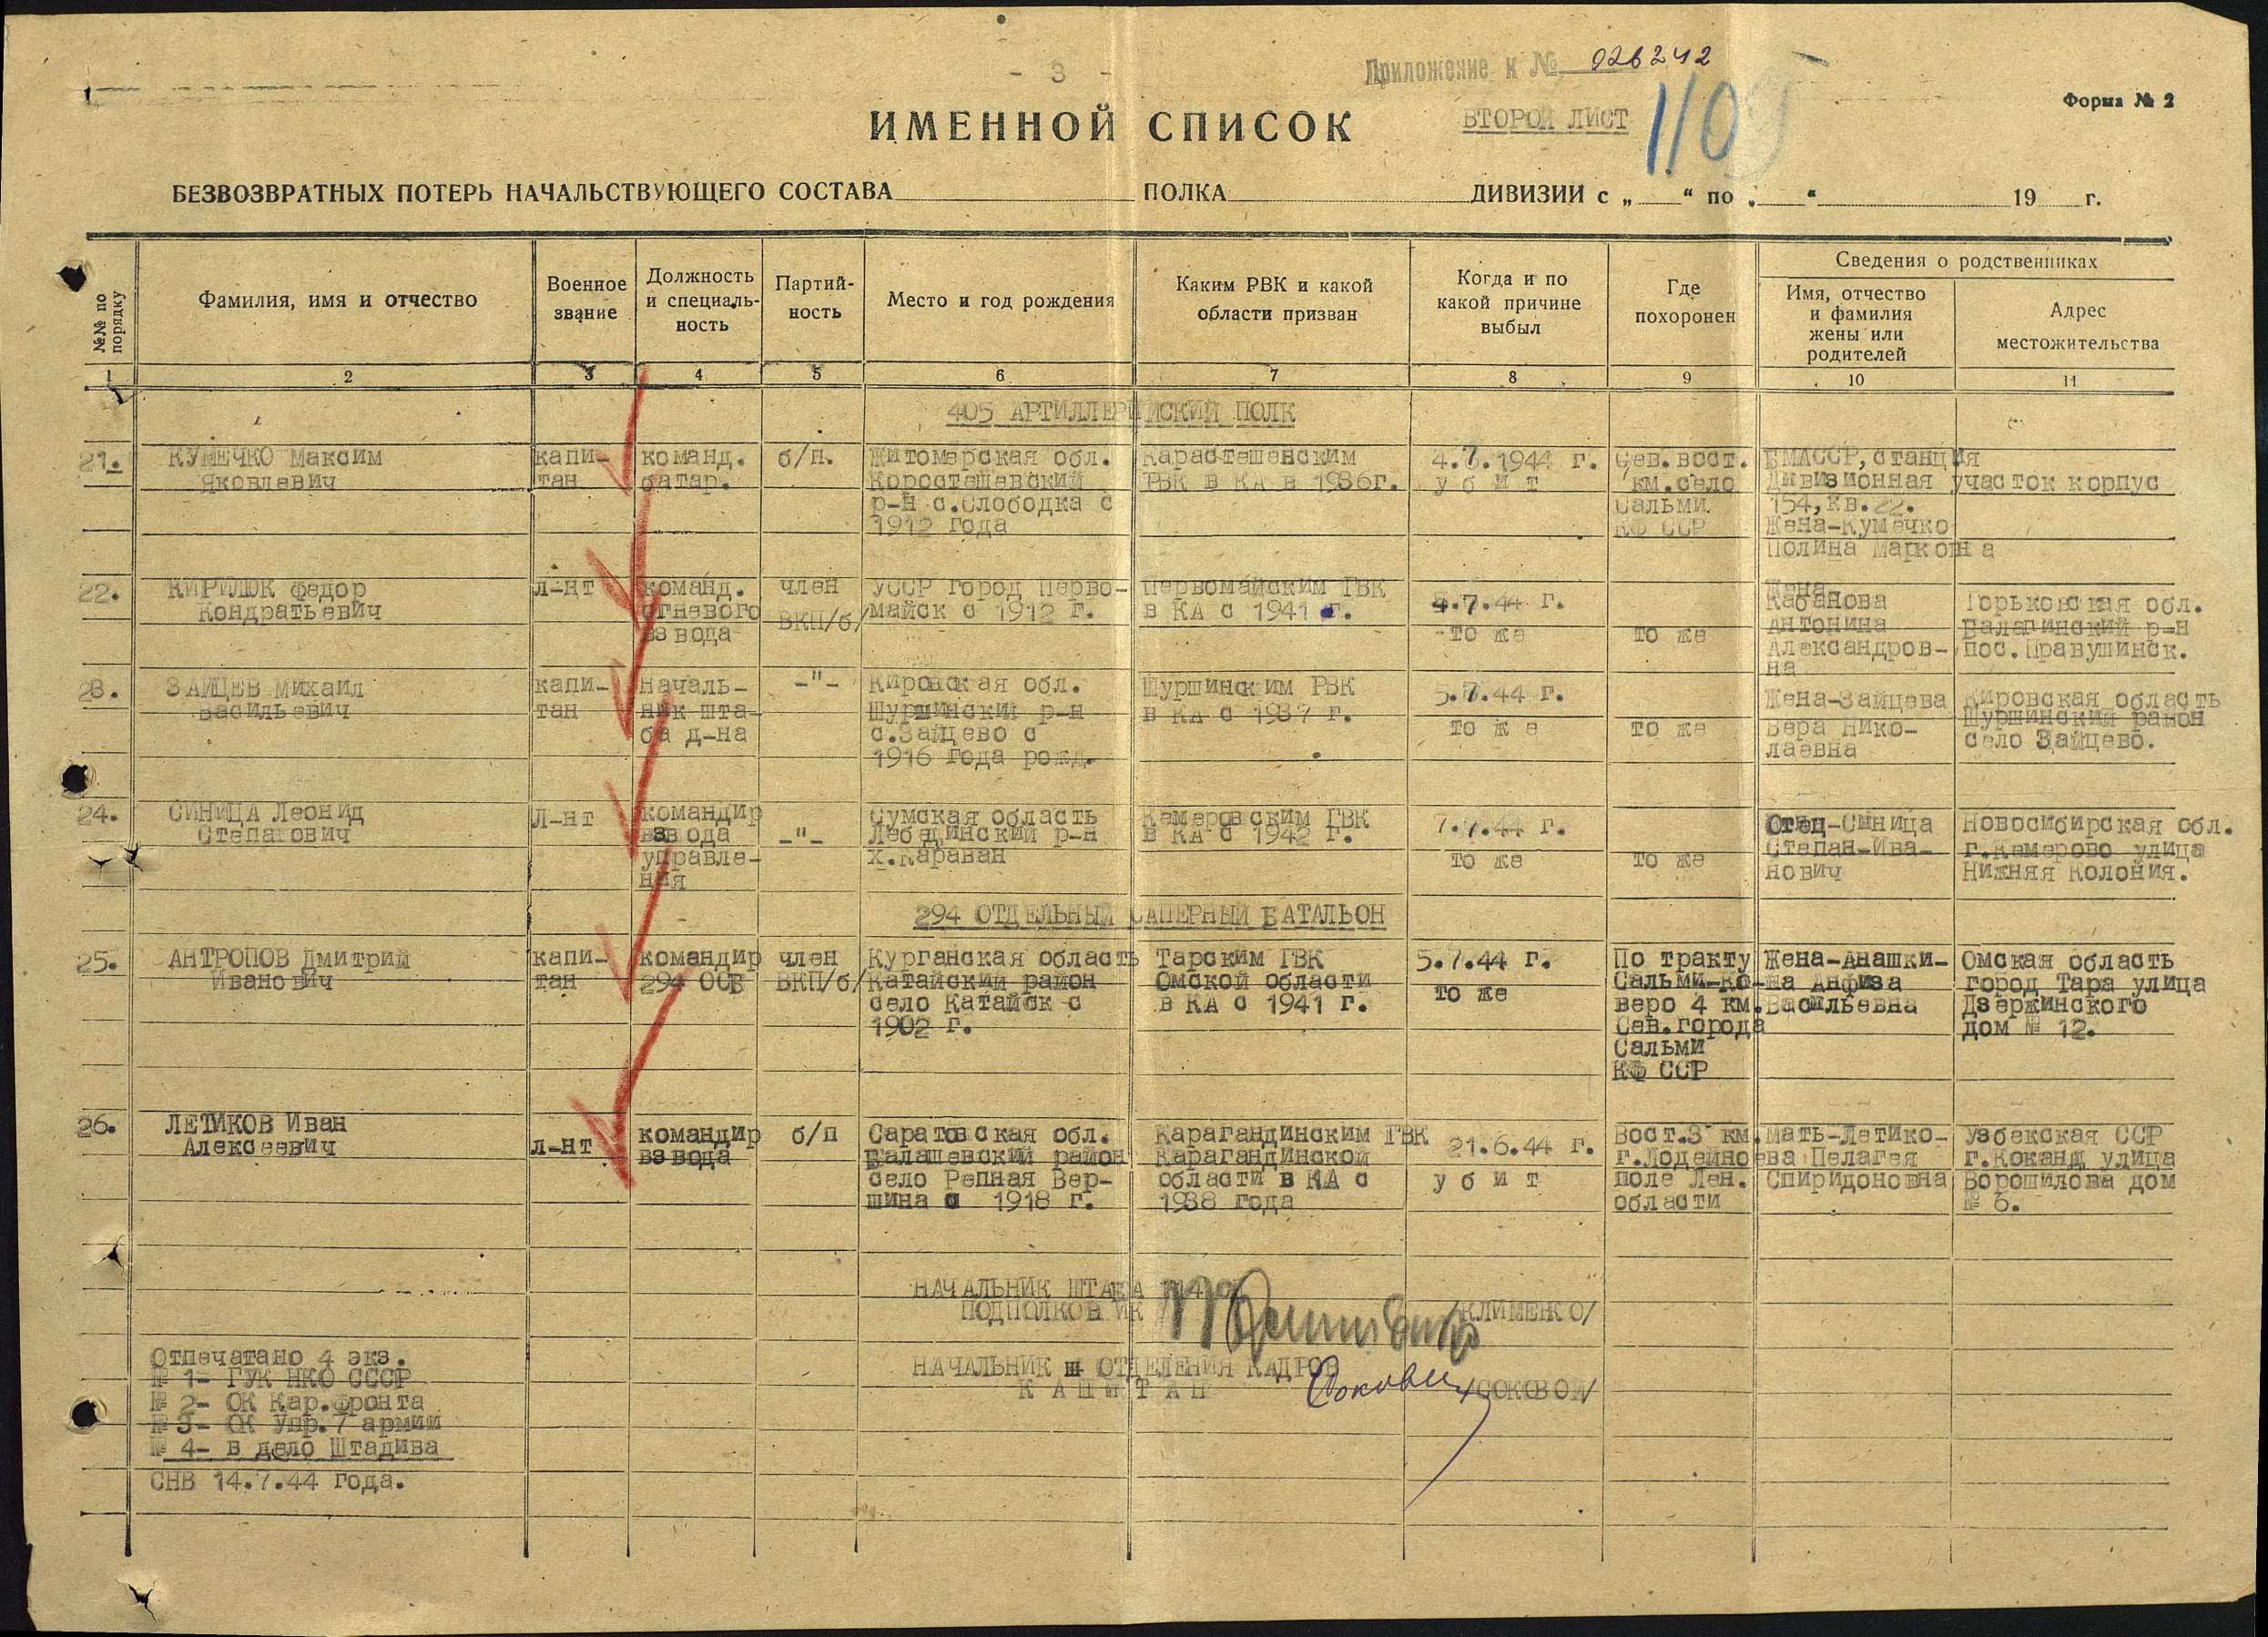 - 3 -
Приложение к № 026242
Форма № 2
ИМЕННОЙ СПИСОК
ВТОРОЙ ЛИСТ
БЕЗВОЗВРАТНЫХ ПОТЕРЬ НАЧАЛЬСТВУЮЩЕГО СОСТАВА ПОЛКА ДИВИЗИИ с „ “ по „ “ 19 г.
№№ по порядку
Фамилия, имя и отчество
Военное
звание
Должность
и специаль-
ность
Партий-
ность
Место и год рождения
Каким РВК и какой
области призван
Когда и по
какой причине
выбыл
Где
похоронен
Сведения о родственниках
Имя, отчество
и фамилия
жены или
родителей
Адрес
местожительства
1 2 3 4 5 6 7 8 9 10 11
405 АРТИЛЛЕРИЙСКИЙ ПОЛК
21.
КУМЕЧКО Максим
Яковлевич
капи-
тан
команд.
батар.
б/п.
Житомерская обл.
Коростешевский
р-н с.Слободка с
1912 года
Карастешенским
РВК в КА в 1936г.
4.7.1944 г.
у б и т
Сев.вост.
км.село
Сальми
КФ ССР
БМАССР, станция
Дивизионная участок корпус
154, кв.22.
Жена-Кумечко
Полина Марковна
22.
КИРИЛЮК Федор
Кондратьевич
л-нт
команд.
огневого
взвода
член
ВКП/б/
УССР город Перво-
майск с 1912 г.
Первомайским ГВК
в КА с 1941 г.
4.7.44 г.
то же
то же
Жена
Кабанова
Антонина
Александров-
на
Горьковская обл.
Балахинский р-н
пос.Правушинск.
23.
ЗАЙЦЕВ Михаил
Васильевич
капи-
тан
Началь-
ник шта-
ба д-на
-"-
Кировская обл.
Шуршинский р-н
с.Зайцево с
1916 года рожд.
Шуршинским РВК
в КА с 1937 г.
5.7.44 г.
то же
то же
Жена-Зайцева
Вера Нико-
лаевна
Кировская область
Шуршинский район
село Зайцево.
24.
СИНИЦА Леонид
Степанович
Л-нт
командир
взвода
управле-
ния
-"-
Сумская область
Лебединский р-н
х.Караван
Кемеровским ГВК
в КА с 1942 г.
7.7.44 г.
то же
то же
Отец-Синица
Степан-Ива-
нович
Новосибирская обл.
г.Кемерово улица
Нижняя Колония.
294 ОТДЕЛЬНЫЙ САПЕРНЫЙ БАТАЛЬОН
25.
АНТРОПОВ Дмитрий
Иванович
капи-
тан
командир
294 ОСБ
член
ВКП/б/
Курганская область
Катайский район
село Катайск с
1902 г.
Тарским ГВК
Омской области
в КА с 1941 г.
5.7.44 г.
то же
По тракту
Сальми-Ко-
веро 4 км.
Сев.города
Сальми
КФ ССР
Жена-Анашки-
на Анфиза
Васильевна
Омская область
город Тара улица
Дзержинского
дом № 12.
26.
ЛЕТИКОВ Иван
Алексеевич
л-нт
командир
взвода
б/п
Саратовская обл.
Балашевский район
село Репная Вер-
шина с 1918 г.
Карагандинским ГВК
Карагандинской
области в КА с
1938 года
21.6.44 г.
у б и т
Вост.3 км.
г.Лодейное
поле Лен.
области
Мать-Летико-
ва Пелагея
Спиридоновна
Узбекская ССР
г.Коканд улица
Ворошилова дом
№ 6.
НАЧАЛЬНИК ШТАБА
ПОДПОЛКОВНИК /КЛИМЕНКО/
НАЧАЛЬНИК ш ОТДЕЛЕНИЯ КАДРОВ
К А П И Т А Н /СОКОВОЙ/
Отпечатано 4 экз.
№ 1- ГУК НКО СССР
№ 2- ОК Кар.фронта
№ 3- ОК Упр.7 армии
№ 4- в дело Штадива
СНВ 14.7.44 года.